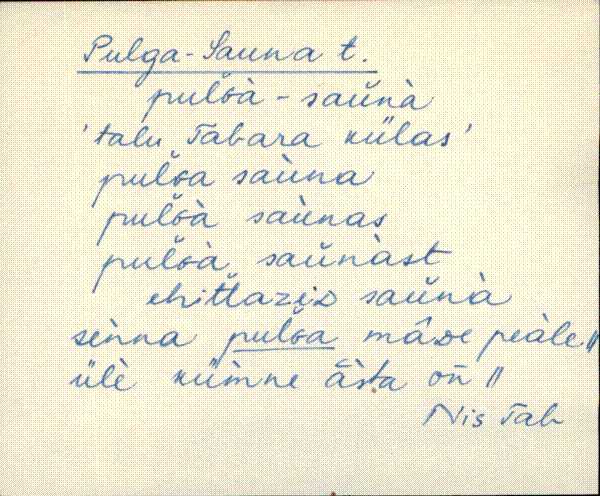 Pulga-Sauna t.
pulɢ̆à - saŭnà
'talu Tabara külas'
pulɢ̆a saùna
pulɢ̆à saùnas
pulɢ̆à saŭnàst
ehittaziᴅ saŭnà
seìnna pulɢ̆a mâᴅe peàle \\
ülè küm̀ne ā̀sta oñ \\
Nis Tab